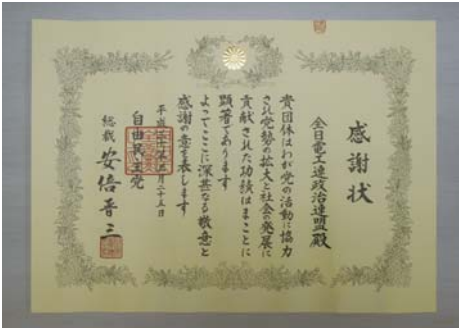 感謝状
全日電工連政治連盟殿
貴団体はわが党の活動に協力
され党勢の拡大と社会の発展に
貢献された功績はまことに
顕著であります
よってここに深甚なる敬意と
感謝の意を表します
平成 月二十五日
自由民主党
総裁 安倍晋三